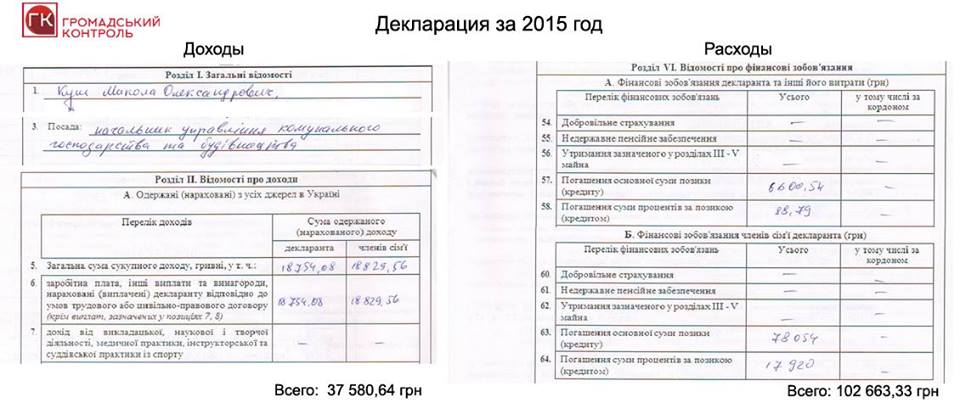 ГК ГРОМАДСЬКИЙ
КОНТРОЛЬ
Декларация за 2015 год
Доходы
Розділ І. Загальні відомості
1. Куш Микола Олександрович,
3. Посада: начальник управління комунального
господарства та будівництва
Розділ ІІ. Відомості про доходи
А. Одержані (нараховані) з усіх джерел в Україні
Перелік доходів
Сума одержаного
(нарахованого) доходу
декларанта членів сім'ї
5. Загальна сума сукупного доходу, гривні, у т. ч.: 18754,08 18829,56
6. заробітна плата, інші виплати та винагороди,
нараховані (виплачені) декларанту відповідно до
умов трудового або цивільно-правового договору
(крім виплат, зазначених у позиціях 7, 8)
18754,08 18829,56
7. дохід від викладацької, наукової і творчої
діяльності, медичної практики, інструкторської та
суддівської практики із спорту
— —
Всего: 37 580,64 грн
Расходы
Розділ VI. Відомості про фінансові зобов'язання
А. Фінансові зобов'язання декларанта та інші його витрати (грн)
Перелік фінансових зобов'язань Усього у тому числі за
кордоном
54. Добровільне страхування — —
55. Недержавне пенсійне забезпечення — —
56. Утримання зазначеного у розділах III - V
майна — —
57. Погашення основної суми позики
(кредиту) 6600,54 —
58. Погашення суми процентів за позикою
(кредитом) 88,79 —
Б. Фінансові зобов'язання членів сім'ї декларанта (грн)
Перелік фінансових зобов'язань Усього у тому числі за
кордоном
60. Добровільне страхування — —
61. Недержавне пенсійне забезпечення — —
62. Утримання зазначеного у розділах III - V
майна — —
63. Погашення основної суми позики
(кредиту) 78054 —
64. Погашення суми процентів за позикою
(кредитом) 17920 —
Всего: 102 663,33 грн